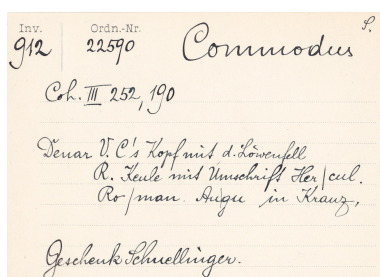 Inv. Ordn.-Nr. S.
912 22590 Commodus
Coh. III 252, 190
Denar V. C's Kopf mit d. Löwenfell
R. Keule mit Umschrift Her/cul.
Ro/man. Augu in Kranz,
Geschenk Schnellinger.